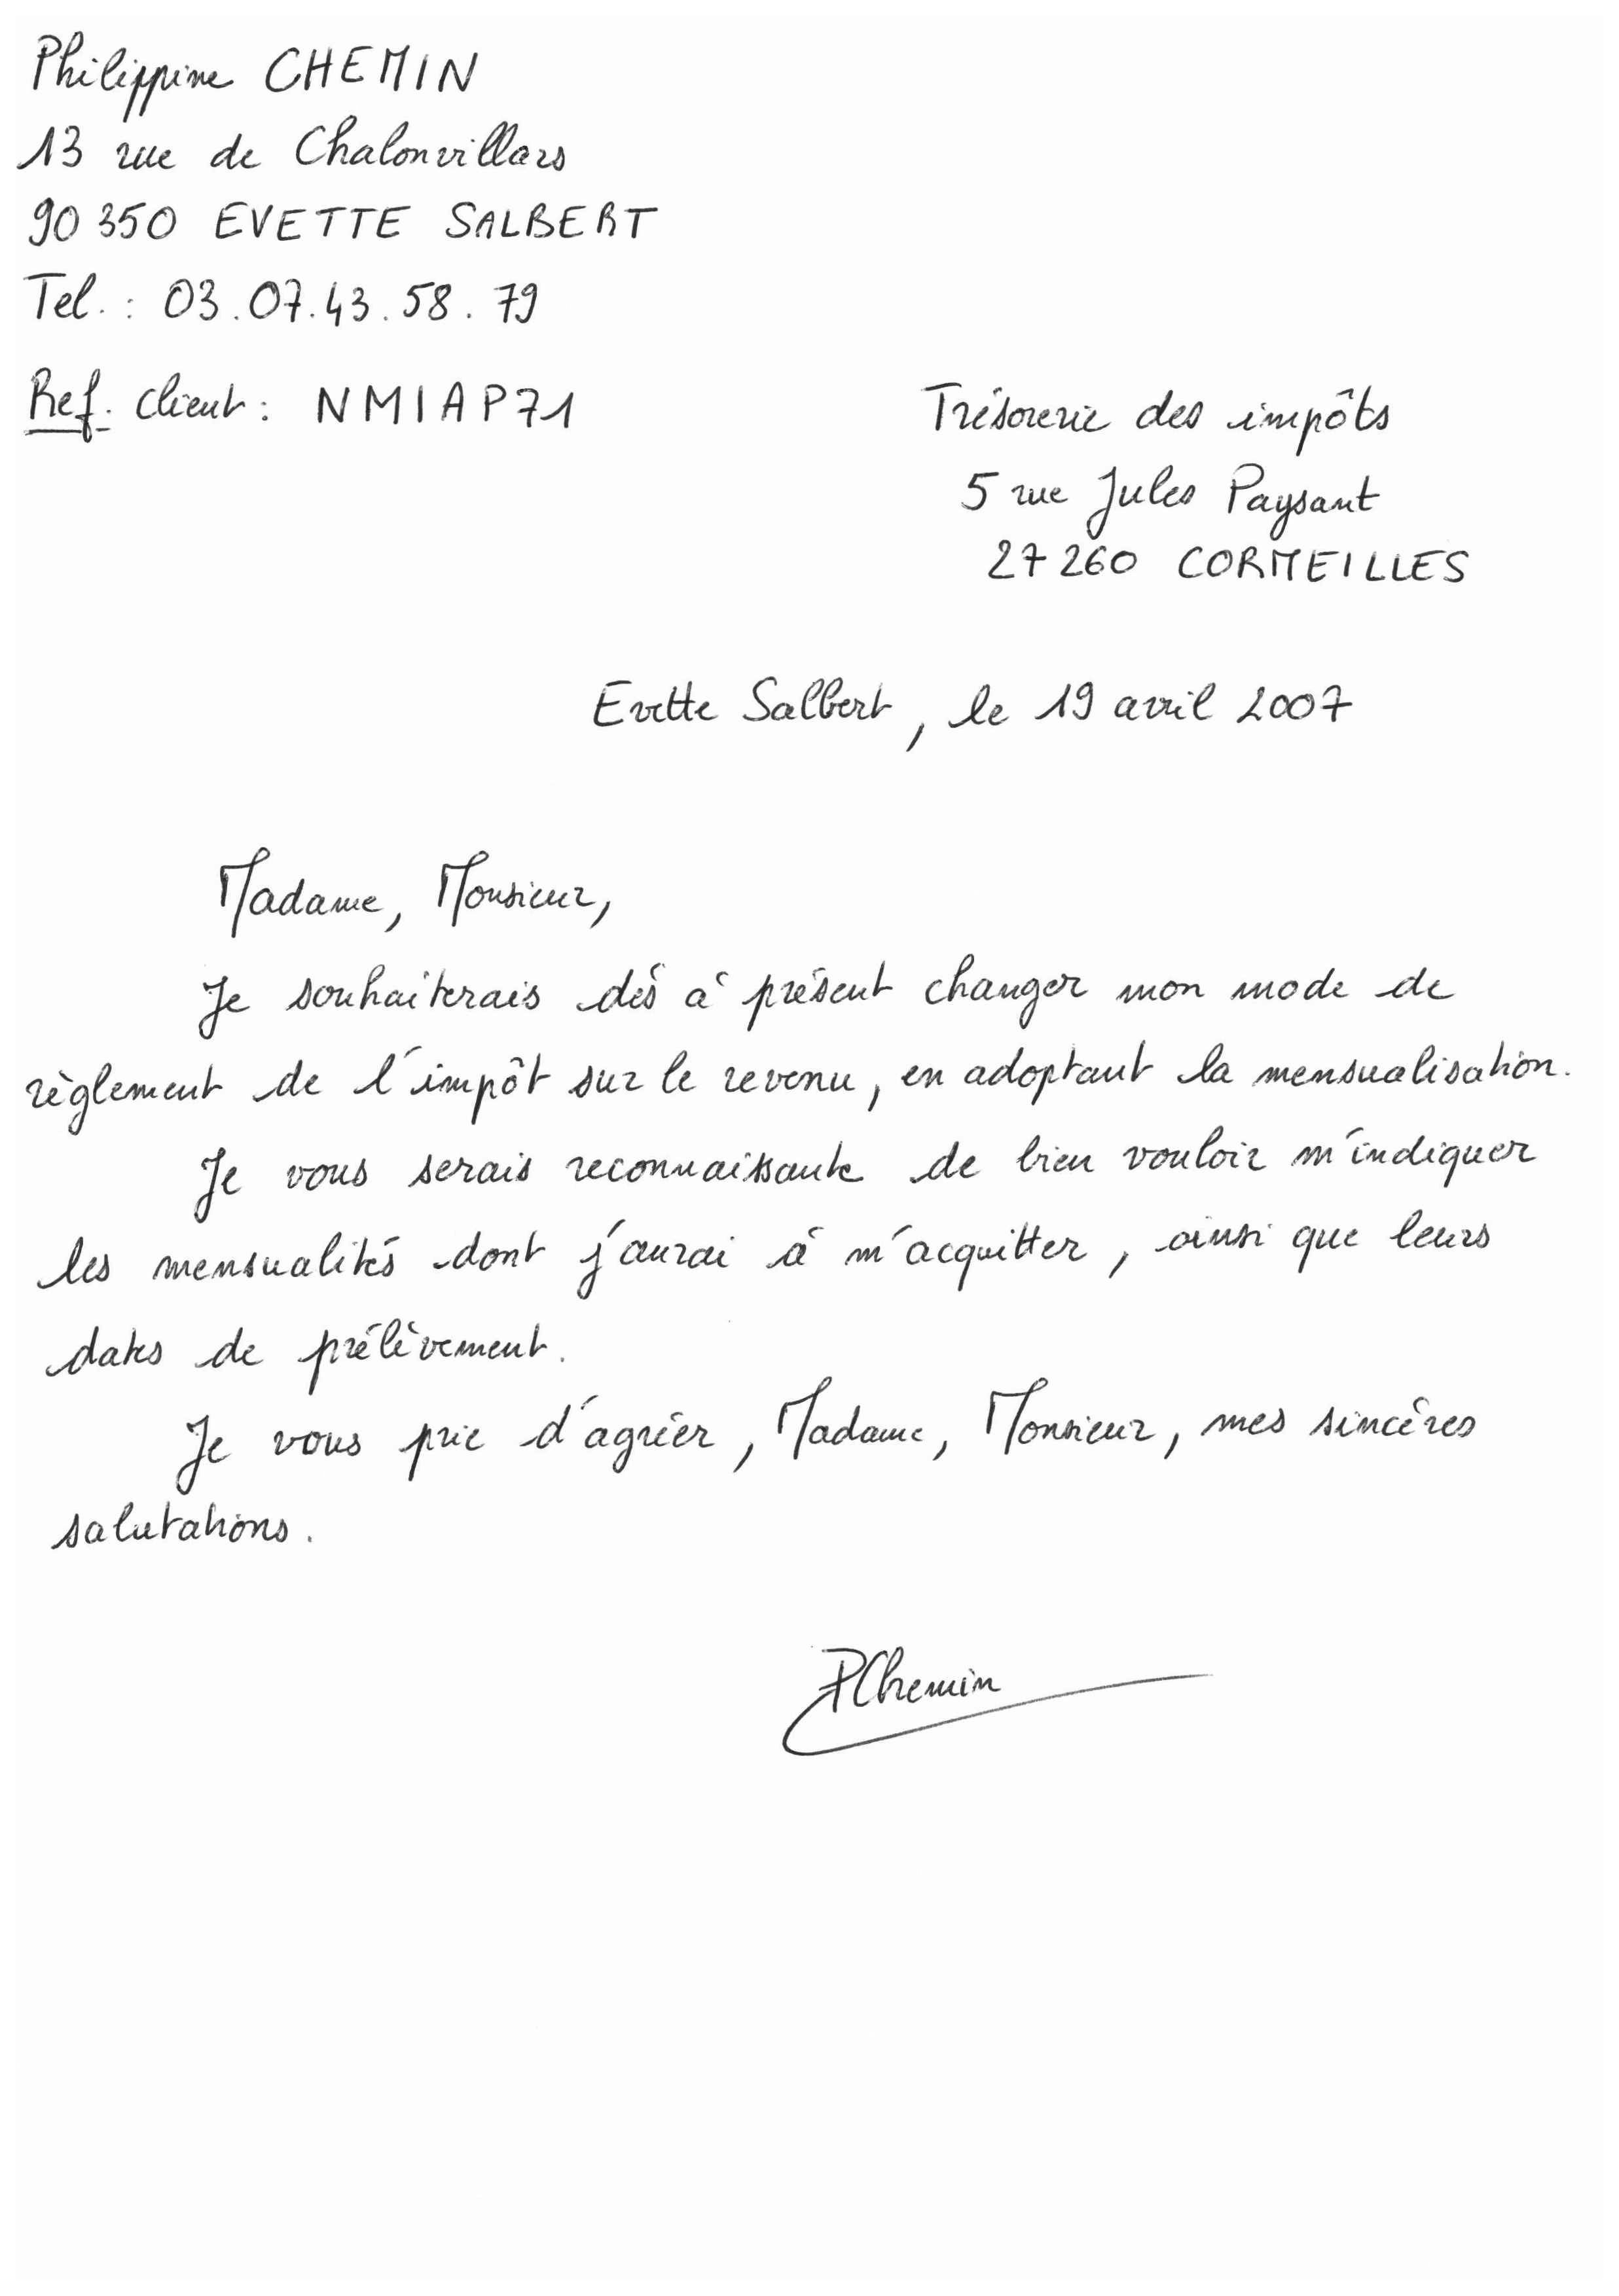 Philippine CHEMIN
13 rue de Chalonvillars
90 350 EVETTE SALBERT
Tel. : 03.07.43.58.79
Ref. client : NMIAP71
Trésorerie des impôts
5 rue Jules Paysant
27 260 CORMEILLES
Evette Salbert, le 19 avril 2007
Madame, Monsieur,
Je souhaiterais dès à présent changer mon mode de
règlement de l'impôt sur le revenu, en adoptant la mensualisation.
Je vous serais reconnaissante de bien vouloir m'indiquer
les mensualités dont j'aurai à m'acquitter, ainsi que leurs
dates de prélèvement.
Je vous prie d'agréer, Madame, Monsieur, mes sincères
salutations.
PChemin